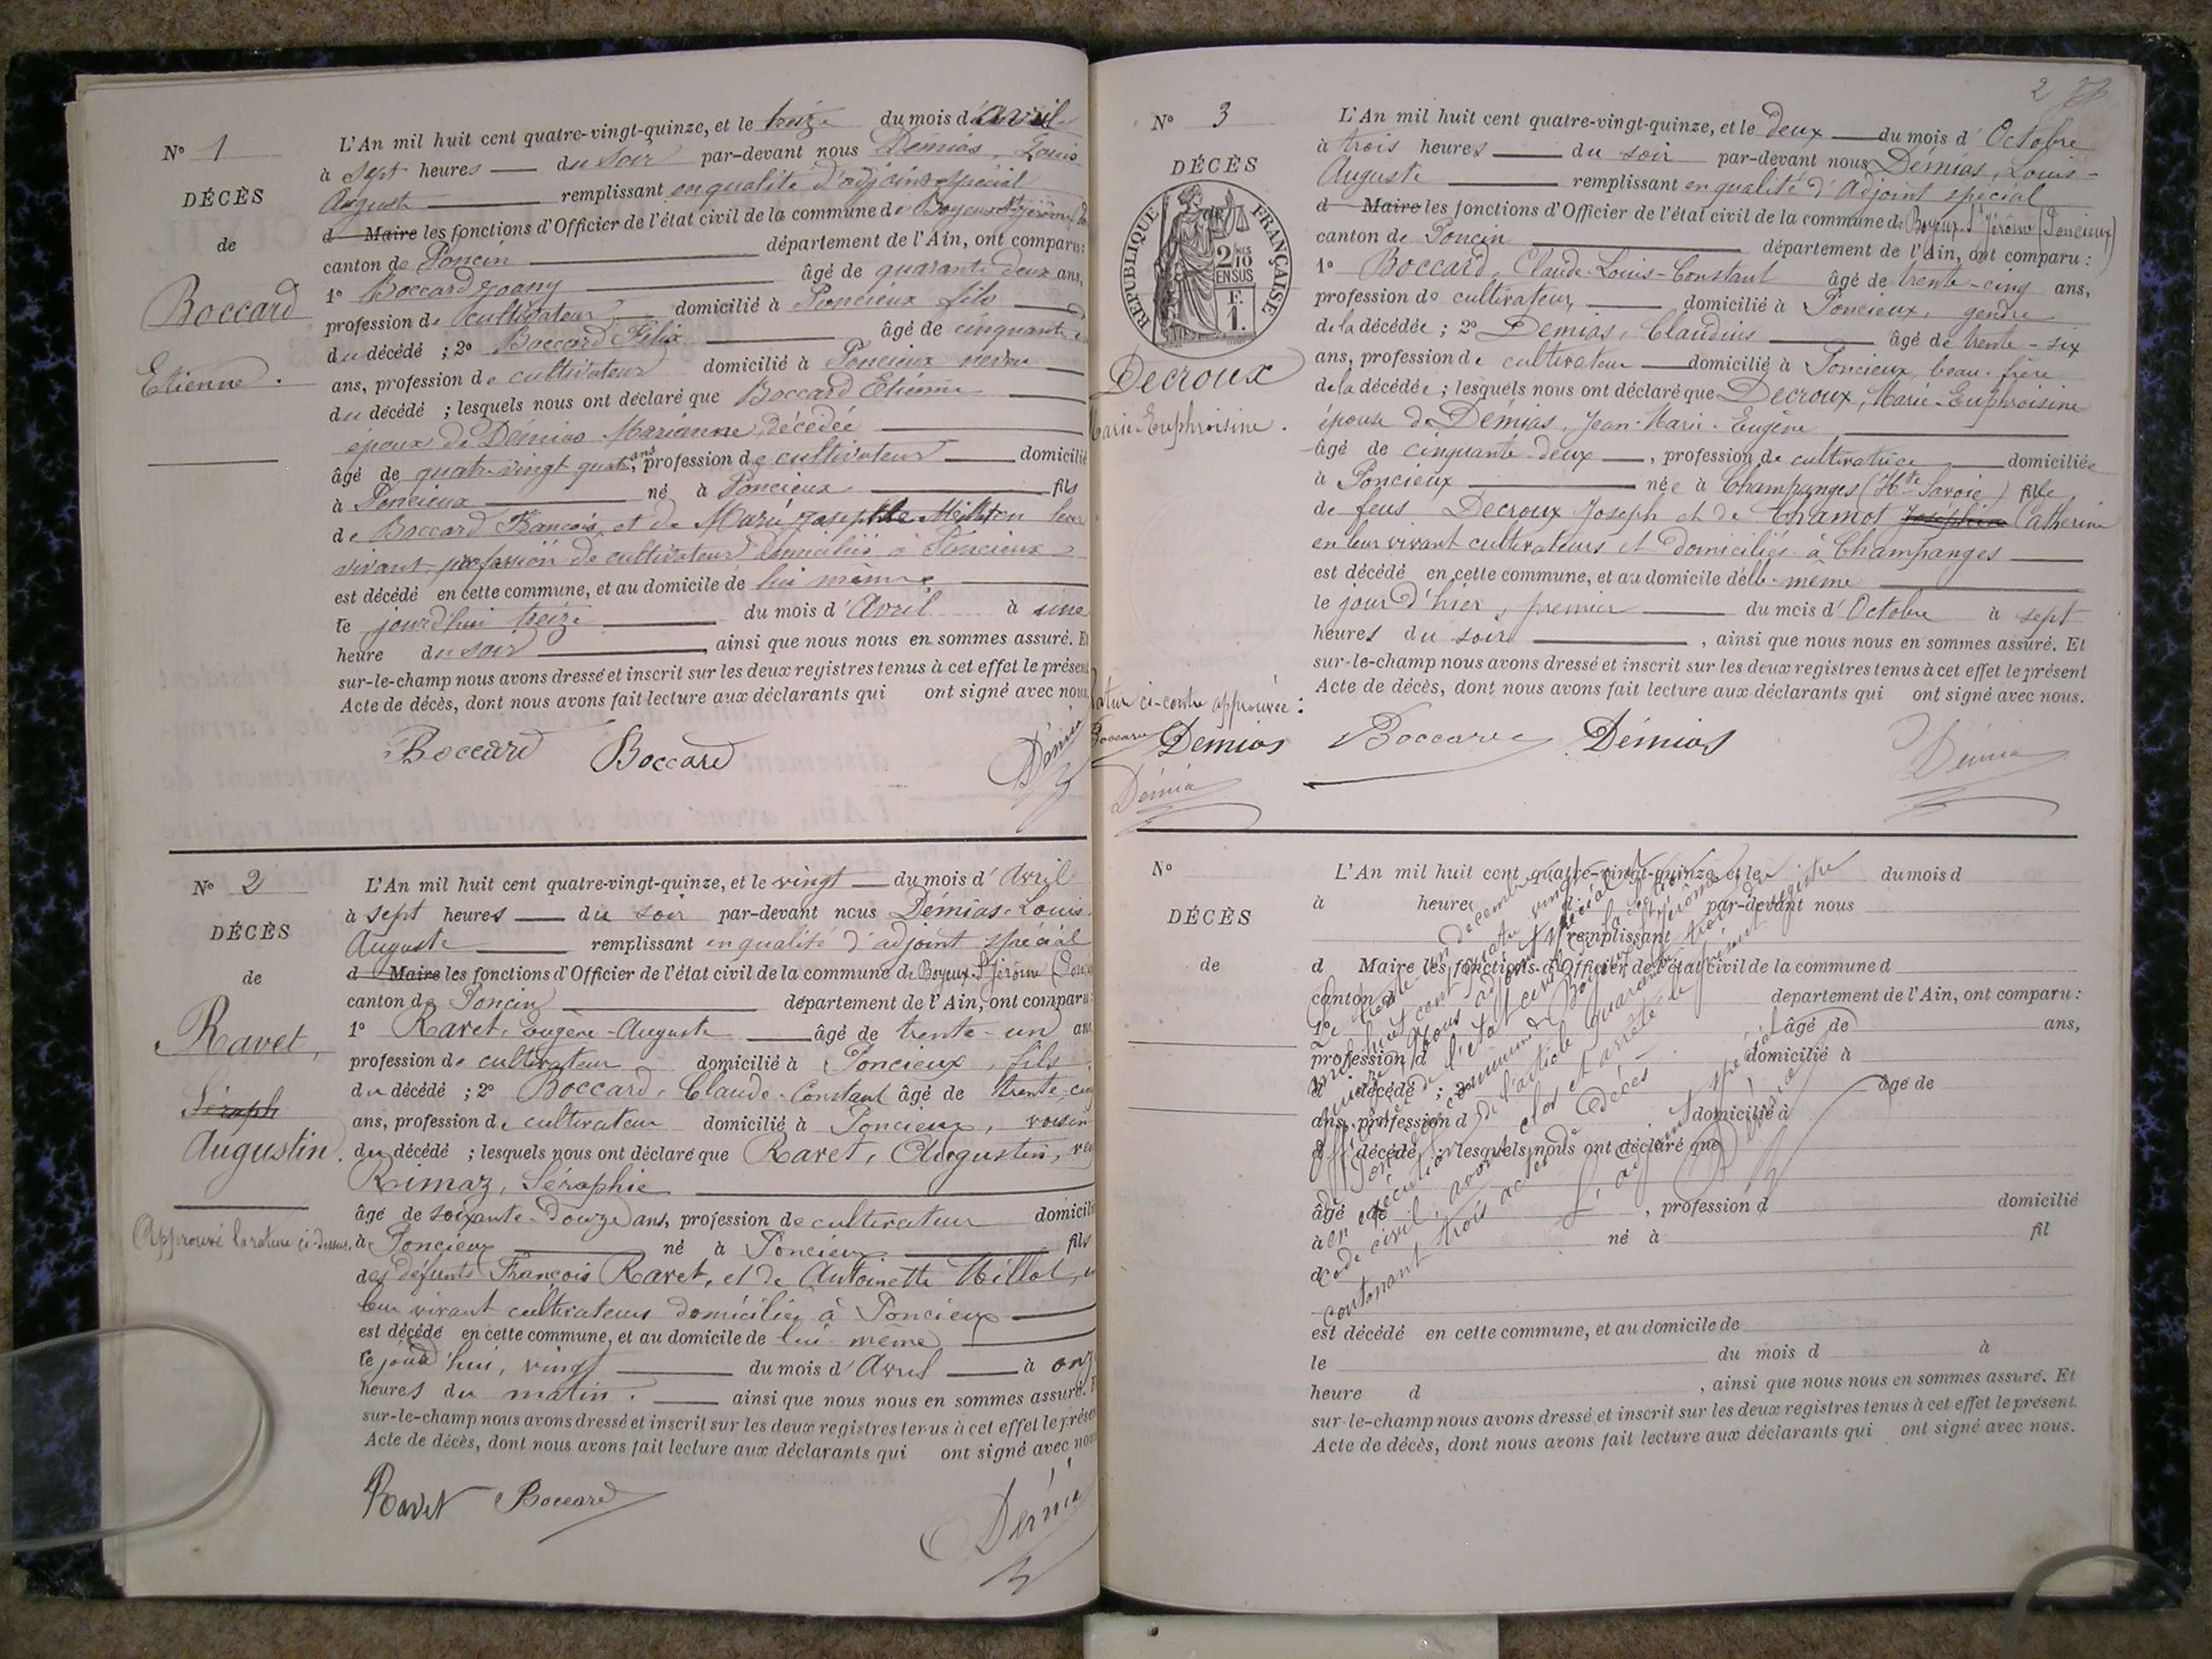 N° 1
DÉCÈS
de
Boccard
Etienne.
L'An mil huit cent quatre-vingt-quinze, et le treize du mois d'Avril
à sept heures du soir par-devant nous Démias, Louis
Auguste remplissant en qualité d'adjoint spécial
d Maire les fonctions d'Officier de l'état civil de la commune de Boyeux St Jérôme
canton de Poncin département de l'Ain, ont comparu:
1° Boccard Joany âgé de quarante deux ans,
profession de cultivateur domicilié à Poncieux fils
du décédé ; 2° Boccard Félix âgé de cinquante
ans, profession de cultivateur domicilié à Poncieux neveu
du décédé ; lesquels nous ont déclaré que Boccard Etienne
époux de Démias Marianne, décédée
âgé de quatre vingt quatre ans, profession de cultivateur domicilié
à Poncieux né à Poncieux fils
de Boccard François et de Marie Josephte leur
vivant profession de cultivateurs domiciliés à Poncieux
est décédé en cette commune, et au domicile de lui même
le jourd'hui treize du mois d'Avril à une
heure du soir, ainsi que nous nous en sommes assuré. Et
sur-le-champ nous avons dressé et inscrit sur les deux registres tenus à cet effet le présent
Acte de décès, dont nous avons fait lecture aux déclarants qui ont signé avec nous.
Boccard Boccard Démia
N° 2
DÉCÈS
de
Ravet,
Séraph
Augustin.
Approuvé la rature ci-dessus.
L'An mil huit cent quatre-vingt-quinze, et le vingt du mois d'Avril
à sept heures du soir par-devant nous Démias, Louis
Auguste remplissant en qualité d'adjoint spécial
d Maire les fonctions d'Officier de l'état civil de la commune de Boyeux-St Jérôme
canton de Poncin département de l'Ain, ont comparu:
1° Ravet, Eugène-Auguste âgé de trente-un ans
profession de cultivateur domicilié à Poncieux, fils
du décédé ; 2° Boccard, Claude-Constant âgé de trente-cinq
ans, profession de cultivateur domicilié à Poncieux, voisin
du décédé ; lesquels nous ont déclaré que Ravet, Augustin,
Rimaz, Séraphie
âgé de soixante-douze ans, profession de cultivateur domicilié
à Poncieux né à Poncieux fils
des défunts François Ravet, et de Antoinette
leur vivant cultivateurs domiciliés à Poncieux
est décédé en cette commune, et au domicile de lui-même
le jourd'hui, vingt du mois d'Avril à onze
heures du matin. ainsi que nous nous en sommes assuré. Et
sur-le-champ nous avons dressé et inscrit sur les deux registres tenus à cet effet le présent
Acte de décès, dont nous avons fait lecture aux déclarants qui ont signé avec nous
Ravet Boccard Démia
2
N° 3
DÉCÈS
RÉPUBLIQUE FRANÇAISE
2/10 EN SUS
F.
1.
Decroux
Marie Euphroisine.
Rature ci-contre approuvée:
Boccard Demias
Démia
L'An mil huit cent quatre-vingt-quinze, et le deux du mois d'Octobre
à trois heures du soir par-devant nous Démias, Louis-
Auguste remplissant en qualité d'Adjoint spécial
d Maire les fonctions d'Officier de l'état civil de la commune de Boyeux-St Jérôme (Poncieux)
canton de Poncin département de l'Ain, ont comparu :
1° Boccard, Claude-Louis-Constant âgé de trente-cinq ans,
profession de cultivateur, domicilié à Poncieux, gendre
de la décédée ; 2° Demias, Claudius âgé de trente-six
ans, profession de cultivateur domicilié à Poncieux, beau-frère
de la décédée ; lesquels nous ont déclaré que Decroux, Marie-Euphroisine
épouse de Demias, Jean-Marie-Eugène
âgé de cinquante-deux, profession de cultivatrice domiciliée
à Poncieux née à Champanges (Hte Savoie) fille
de feus Decroux Joseph et de Chamot Joséphine Catherine
en leur vivant cultivateurs et domiciliés à Champanges
est décédé en cette commune, et au domicile d'elle-même
le jour d'hier, premier du mois d'Octobre à sept
heures du soir, ainsi que nous nous en sommes assuré. Et
sur-le-champ nous avons dressé et inscrit sur les deux registres tenus à cet effet le présent
Acte de décès, dont nous avons fait lecture aux déclarants qui ont signé avec nous.
Boccard Démias Démia
N°
DÉCÈS
de
L'An mil huit cent quatre-vingt-quinze, et le du mois d
à heures d par-devant nous
remplissant
d Maire les fonctions d'Officier de l'état civil de la commune d
canton d département de l'Ain, ont comparu :
1° âgé de ans,
profession d domicilié à
d décédé ; 2° âgé de
ans, profession d domicilié à
d décédé ; lesquels nous ont déclaré que
âgé de , profession d domicilié
à né à fil
d
est décédé en cette commune, et au domicile de
le du mois d à
heure d , ainsi que nous nous en sommes assuré. Et
sur-le-champ nous avons dressé et inscrit sur les deux registres tenus à cet effet le présent
Acte de décès, dont nous avons fait lecture aux déclarants qui ont signé avec nous.
Le trente-un décembre
mil huit cent quatre vingt
quinze, Nous adjoint spécial
officier de l'état civil de la section
de Poncieux commune de Boyeux St Jérôme
en exécution de l'article quarante trois du
code civil, avons clos et arrêté le présent registre
contenant trois actes de décès
L'adjoint spécial
Démia